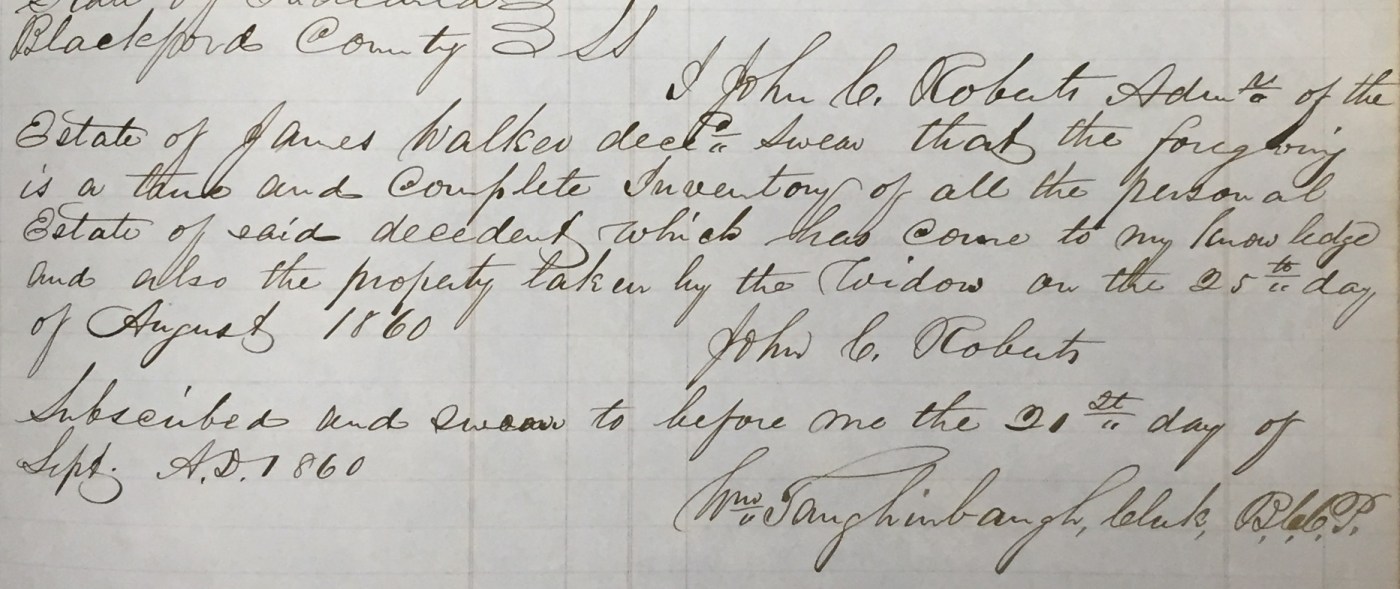 State of Indiana }
Blackford County } SS
I John C. Roberts Admr of the
Estate of James Walker decd swear that the foregoing
is a true and Complete Inventory of all the personal
Estate of said decedent which has come to my knowledge
and also the property taken by the Widow on the 25th day
of August 1860 John C. Roberts
Subscribed and swear to before me the 21st day of
Sept. A.D. 1860
Wm Taughinbaugh, Clerk, B.C.C.P.